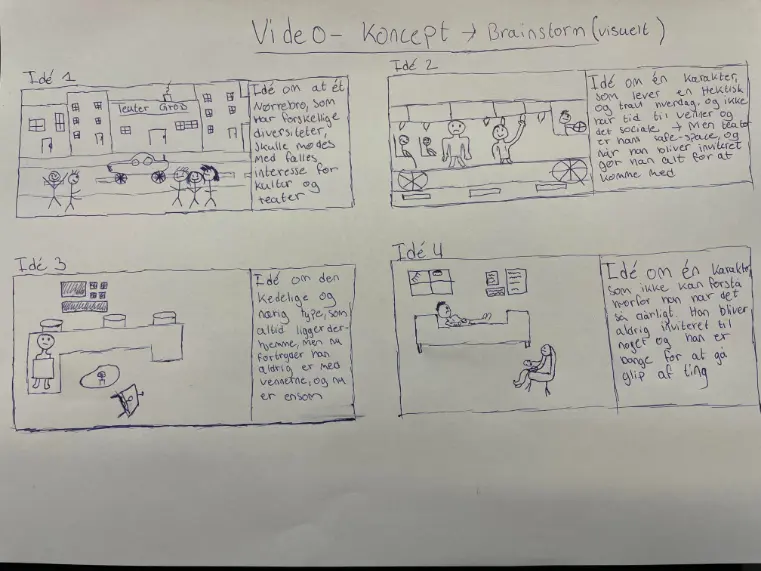 Video- Koncept → Brainstorm (visuelt)
Idé 1
Teater Grob
Idé om at ét
Nørrebro, som
har forskellige
diversiteter,
skulle mødes
med fælles
interesse for
kultur og
teater
Idé 2
Idé om én karakter,
som lever en hektisk
og travl hverdag, og ikke
har tid til venner og
det sociale. → Men teater
er hans safe-space, og
når han bliver inviteret
gør han alt for at
komme med
Idé 3
Idé om den
kedelige og
nørig type, som
altid ligger der-
hjemme, men nu
fortryder han
aldrig er med
vennerne, og nu
er ensom
Idé 4
Idé om én karakter,
som ikke kan forstå
hvorfor han har det
så dårligt. Han bliver
aldrig inviteret til
noget og han er
bange for at gå
glip af ting